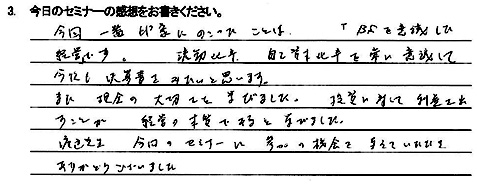 3. 今日のセミナーの感想をお書きください。
今回一番印象にのこったことは、「BSを意識した
経営です。流動比率、自己資本比率を常に意識して
今後も決算書をみたいと思います。
また現金の大切さを学びました。投資に対して利益を出
すことが経営の本質であると学びました。
先生 今日のセミナーに参加の機会を与えていただき
ありがとうございました